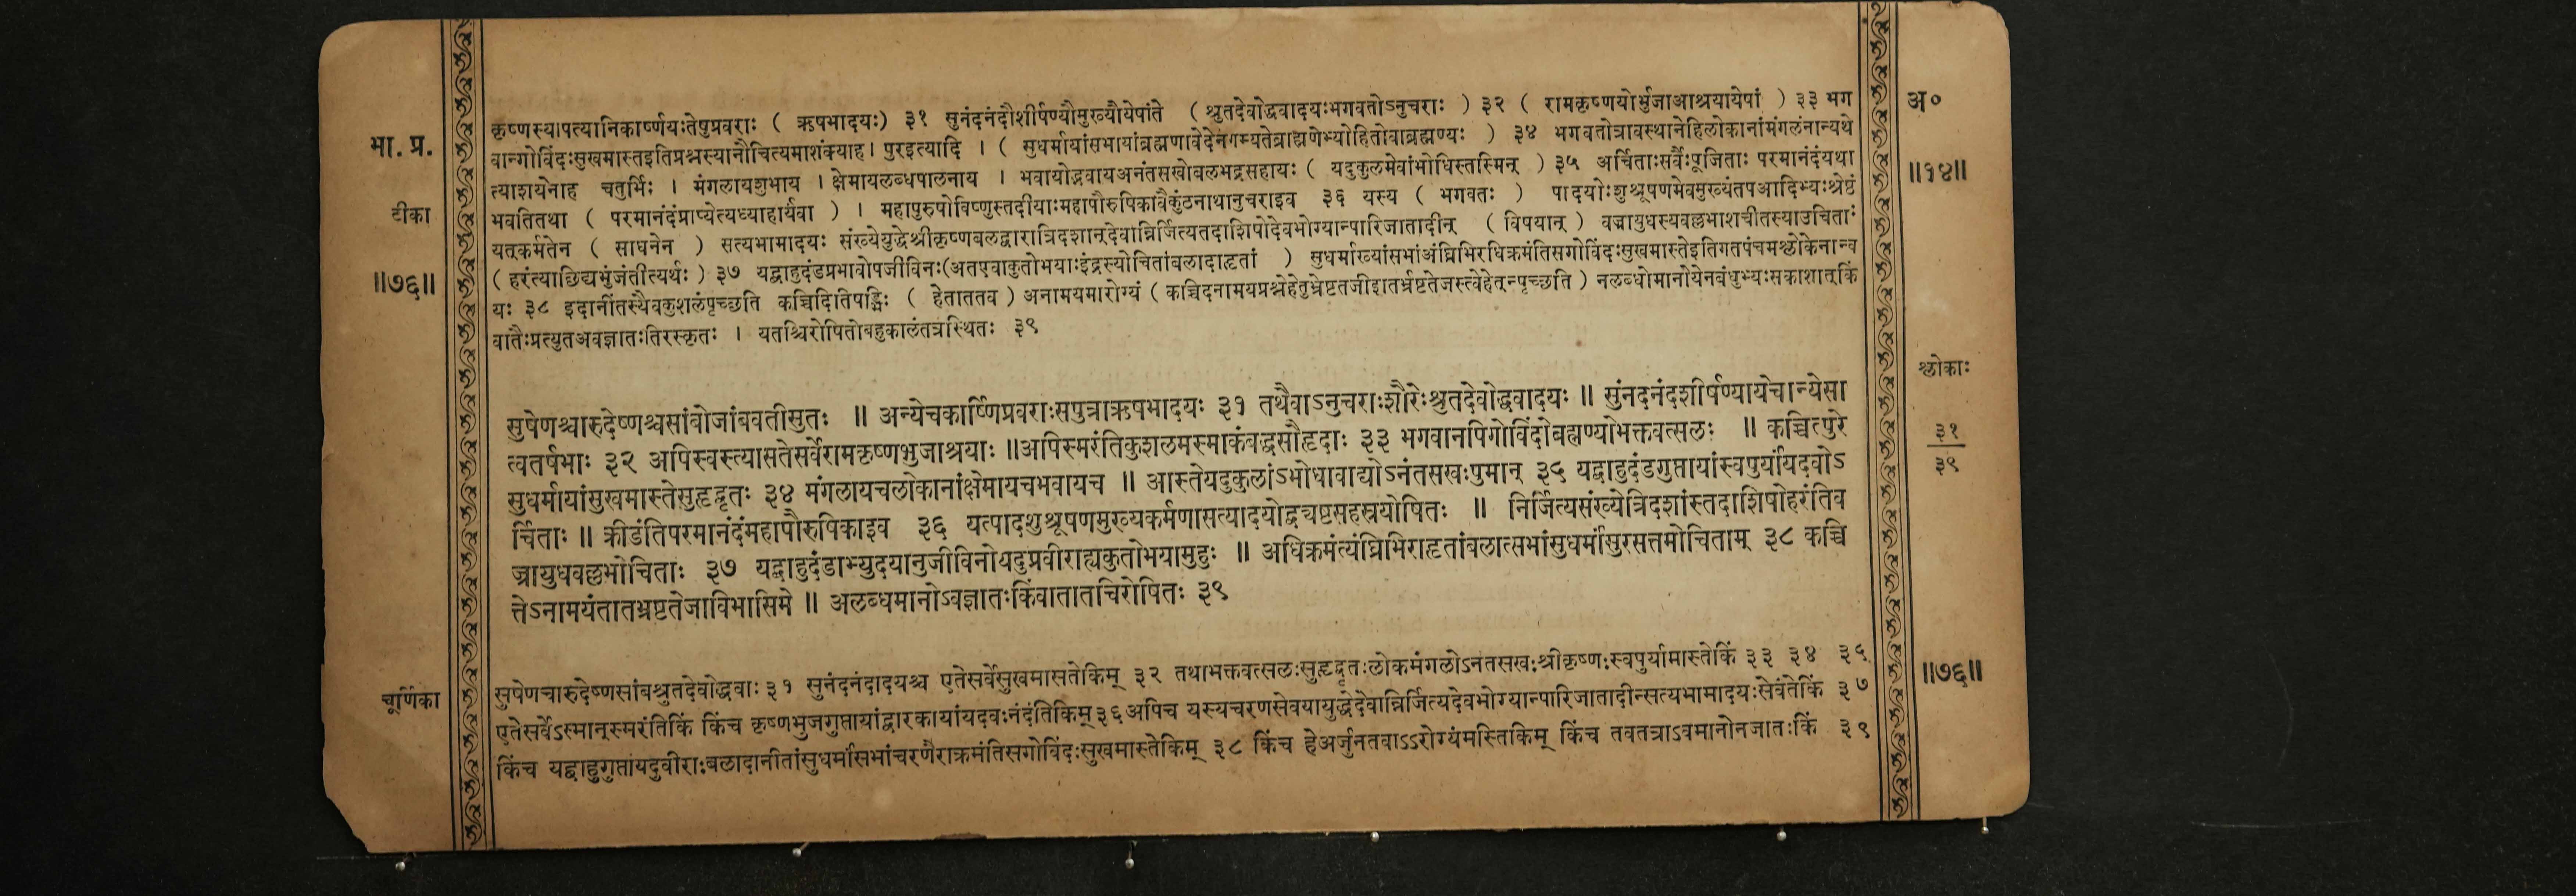 भा. प्र.
टीका
॥७६॥
चूर्णिका
कृष्णस्यापत्यानिकार्ष्णयःतेषुप्रवराः ( ऋषभादयः) ३१ सुनंदनंदौशीर्षण्यौमुख्यौयेषांते (श्रुतदेवोद्धवादयःभगवतोऽनुचराः ) ३२ ( रामकृष्णयोर्भुजाआश्रयायेषां ) ३३ भग
वान्गोविंदःसुखमास्तइतिप्रश्नस्यानौचित्यमाशंक्याह। पुरइत्यादि । ( सुधर्मायांसभायांब्रह्मणावेदेनगम्यतेब्राह्मणेभ्योहितोवाब्रह्मण्यः ) ३४ भगवतोत्रावस्थानेहिलोकानांमंगलंनान्यथे
त्याशयेनाह चतुर्भिः । मंगलायशुभाय । क्षेमायलब्धपालनाय । भवायोद्भवायअनंतसखोबलभद्रसहायः ( यदुकुलमेवांभोधिस्तस्मिन् ) ३५ अर्चिताःसर्वैःपूजिताः परमानंदंयथा
भवतितथा ( परमानंदंप्राप्येत्यध्याहार्यंवा ) । महापुरुषोविष्णुस्तदीयाःमहापौरुषिकावैकुंठनाथानुचराइव ३६ यस्य ( भगवतः ) पादयोःशुश्रूषणमेवमुख्यंतपआदिभ्यःश्रेष्ठं
यत्कर्मतेन ( साधनेन ) सत्यभामादयः संख्येयुद्धेश्रीकृष्णबलद्वारात्रिदशान्देवान्निर्जित्यतदाशिषोदेवभोग्यान्पारिजातादीन् (विषयान् ) वज्रायुधस्यवल्लभाशचीतस्याउचिताः
( हरंत्याछिद्यभुंजंतीत्यर्थः ) ३७ यद्बाहुदंडप्रभावोपजीविनः(अतएवाकुतोभयाःइंद्रस्योचितांबलादाहृतां ) सुधर्माख्यांसभांअंघ्रिभिरधिक्रमंतिसगोविंदःसुखमास्तेइतिगतपंचमश्लोकेनान्व
यः ३८ इदानींतस्यैवकुशलंपृच्छति कच्चिदितिषड्भिः ( हेताततव ) अनामयमारोग्यं ( कच्चिदनामयप्रश्नेहेतुर्भ्रष्टतेजाइति ) नलब्धोमानोयेनबंधुभ्यःसकाशात्किं
वातैःप्रत्युतअवज्ञातःतिरस्कृतः । यतश्चिरोषितोबहुकालंतत्रस्थितः ३९
सुषेणश्चारुदेष्णश्चसांबोजांबवतीसुतः ॥ अन्येचकार्ष्णिप्रवराःसपुत्राऋषभादयः ३१ तथैवाऽनुचराःशौरेःश्रुतदेवोद्धवादयः ॥ सुंनदनंदशीर्षण्यायेचान्येसा
त्वतर्षभाः ३२ अपिस्वस्त्यासतेसर्वेरामकृष्णभुजाश्रयाः ॥अपिस्मरंतिकुशलमस्माकंबद्धसौहृदाः ३३ भगवानपिगोविंदोब्रह्मण्योभक्तवत्सलः ॥ कच्चित्पुरे
सुधर्मायांसुखमास्तेसुहृद्वृतः ३४ मंगलायचलोकानांक्षेमायचभवायच ॥ आस्तेयदुकुलांऽभोधावाद्योऽनंतसखःपुमान् ३५ यद्बाहुदंडगुप्तायांस्वपुर्यांयदवोऽ
र्चिताः ॥ क्रीडंतिपरमानंदंमहापौरुषिकाइव ३६ यत्पादशुश्रूषणमुख्यकर्मणासत्यादयोद्व्यष्टसहस्रयोषितः ॥ निर्जित्यसंख्येत्रिदशांस्तदाशिषोहरंतिव
ज्रायुधवल्लभोचिताः ३७ यद्बाहुदंडाभ्युदयानुजीविनोयदुप्रवीराह्यकुतोभयामुहुः ॥ अधिक्रमंत्यंघ्रिभिराहृतांबलात्सभांसुधर्मांसुरसत्तमोचिताम् ३८ कच्चि
त्तेऽनामयंतातभ्रष्टतेजाविभासिमे ॥ अलब्धमानोऽवज्ञातःकिंवातातचिरोषितः ३९
सुषेणचारुदेष्णसांबश्रुतदेवोद्धवाः ३१ सुनंदनंदादयश्च एतेसर्वेसुखमासतेकिम् ३२ तथाभक्तवत्सलःसुहृद्वृतःलोकमंगलोऽनतसखःश्रीकृष्णःस्वपुर्यामास्तेकिं ३३ ३४ ३५
एतेसर्वेऽस्मान्स्मरंतिकिं किंच कृष्णभुजगुप्तायांद्वारकायांयदवःनंदंतिकिम् ३६ अपिच यस्यचरणसेवयायुद्धेदेवान्निर्जित्यदेवभोग्यान्पारिजातादीन्सत्यभामादयःसेवंतेकिं ३७
किंच यद्बाहुगुप्तांयदुवीराःबलादानीतांसुधर्मांसभांचरणैराक्रमंतिसगोविंदःसुखमास्तेकिम् ३८ किंच हेअर्जुनतवाऽऽरोग्यंमस्तिकिम् किंच तवतत्राऽवमानोनजातःकिं ३९
अ०
॥१४॥
श्लोकाः
३१
३९
॥७६॥